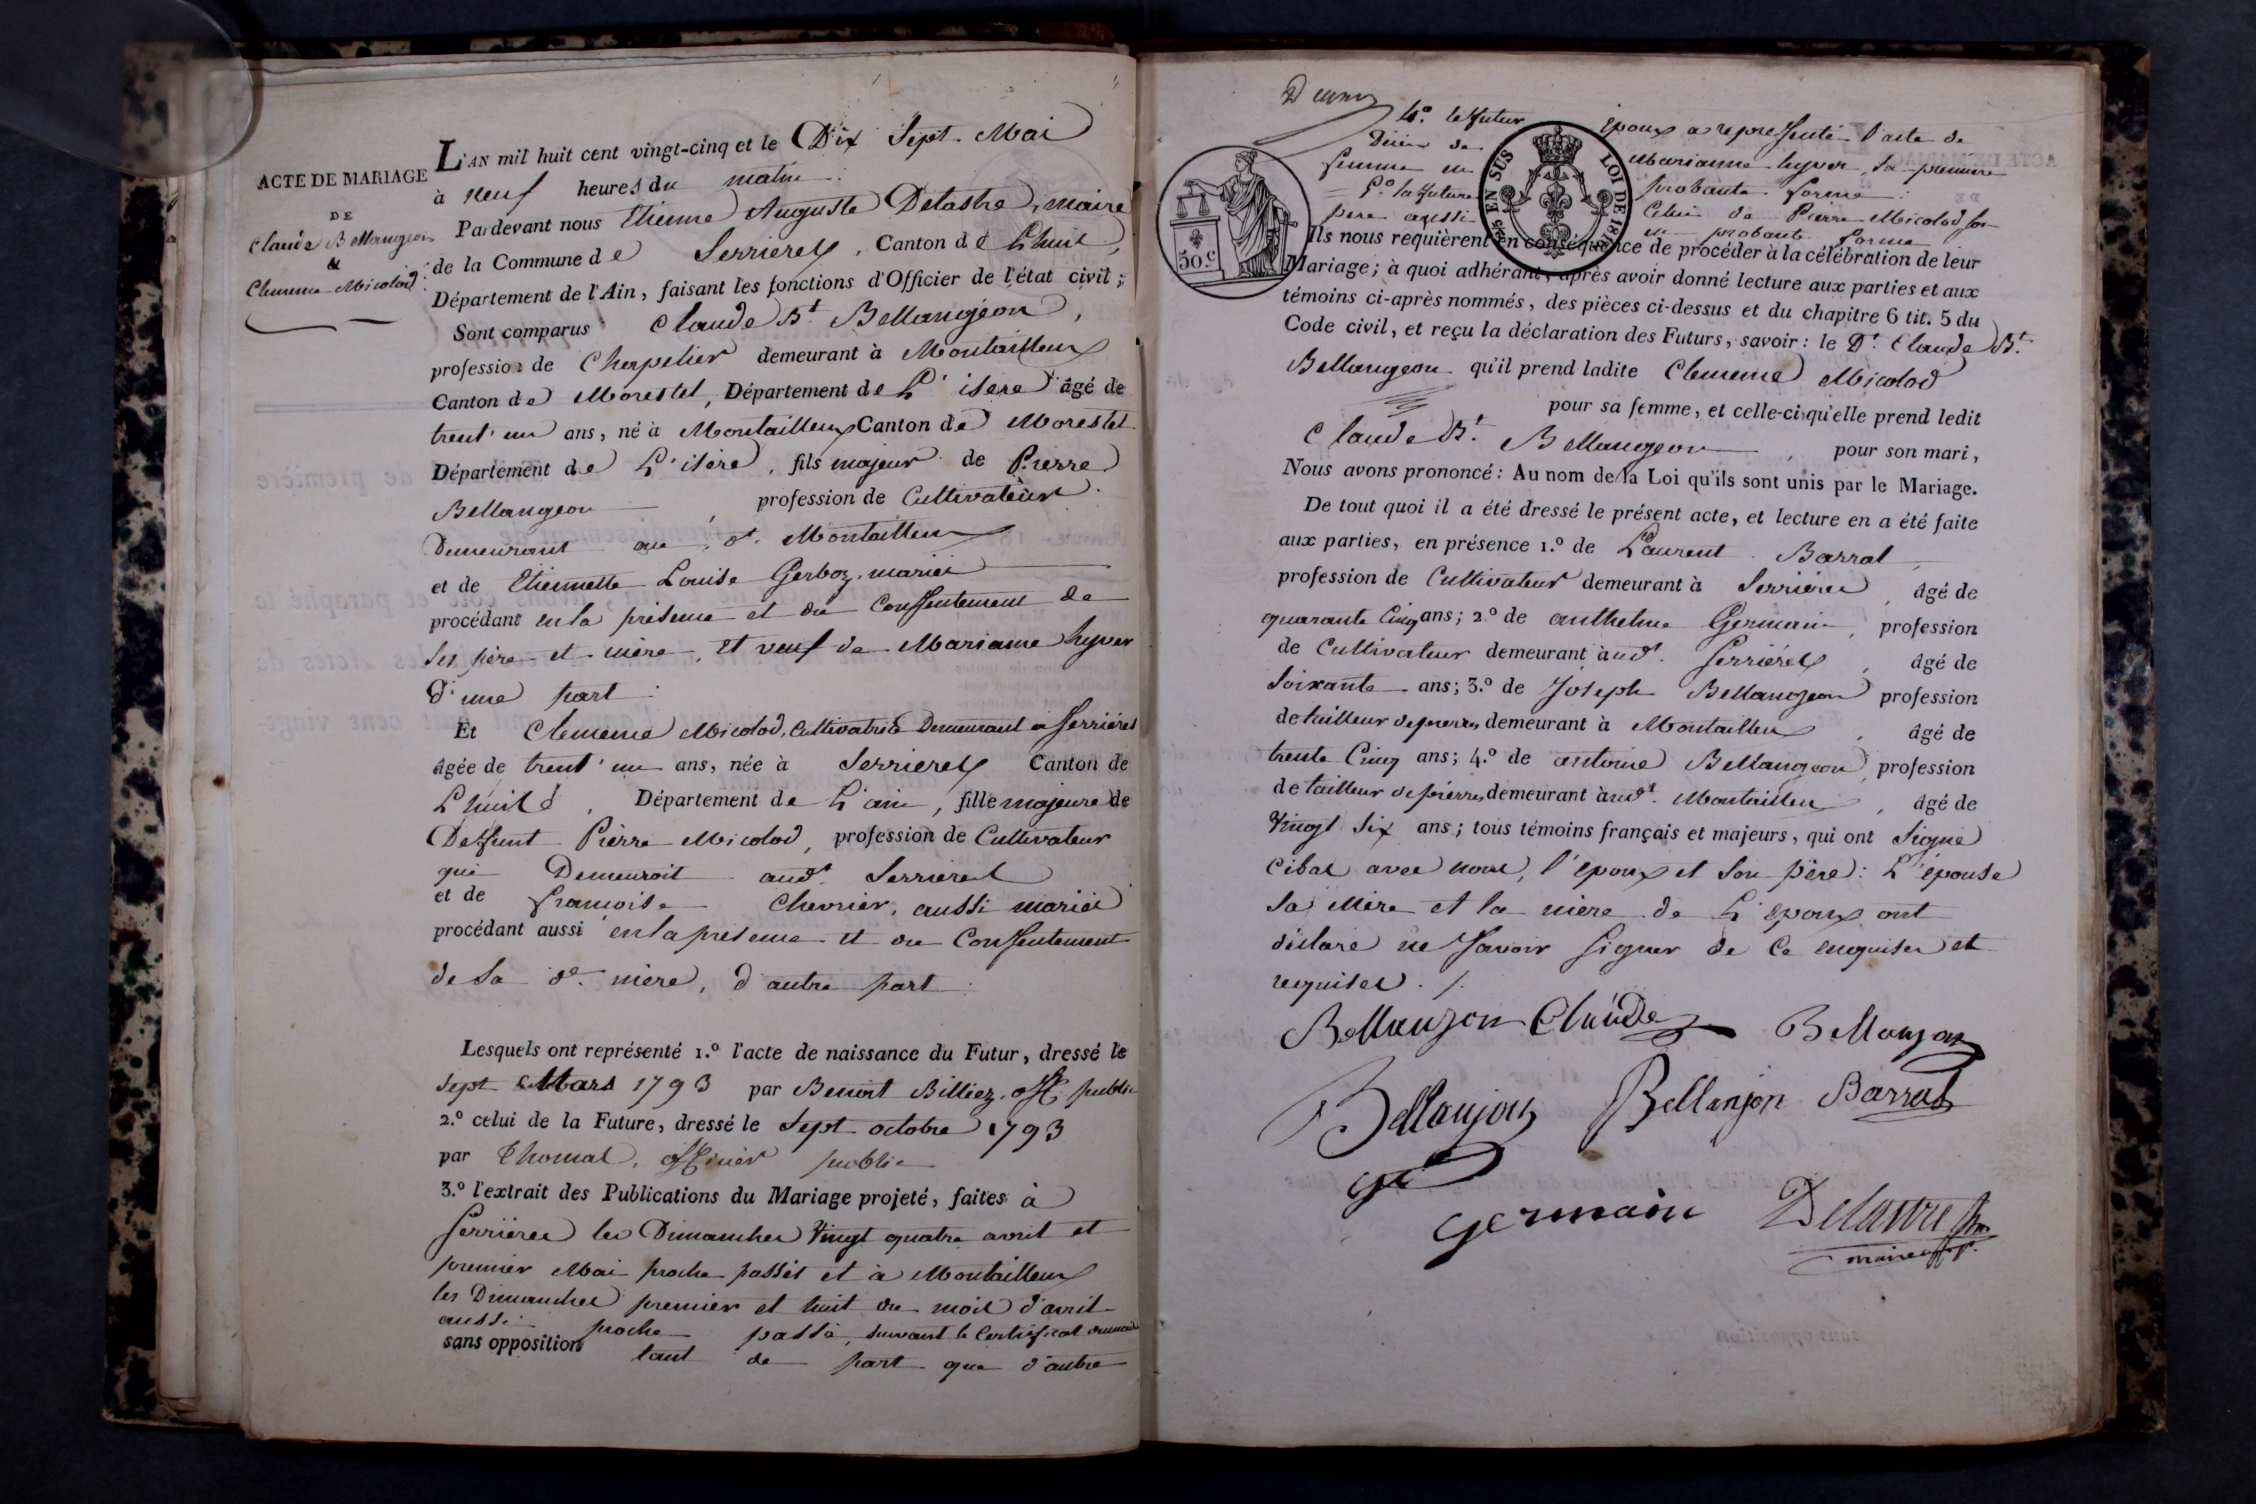 ACTE DE MARIAGE
DE
Claude Bellangeon
&
Clemence Micolod
L'AN mil huit cent vingt-cinq et le Dix Sept Mai
à neuf heures du matin
Pardevant nous Etienne Auguste Delastre, maire
de la Commune de Serrieres, Canton de Lhuis,
Département de l'Ain, faisant les fonctions d'Officier de l'état civil;
Sont comparus Claude Bt. Bellangeon,
profession de Chapelier demeurant à Montailleux
Canton de Morestel, Département de L'isere âgé de
trent'un ans, né à Montailleux Canton de Morestel
Département de L'isère, fils majeur de Pierre
Bellangeon, profession de Cultivateur
Demeurant au dt. Montailleux
et de Etiennette Louise Gerboz, mariés
procédant en la présence et du Consentement de
ses père et mère, et veuf de Marianne hyver
d'une part
Et Clemence Micolod, Cultivatrice Demeurant à Serrieres
âgée de trent'un ans, née à Serrieres Canton de
Lhuis, Département de L'ain, fille majeure de
Deffunt Pierre Micolod, profession de Cultivateur
qui Demeuroit audt. Serrieres
et de francoise Chevrier, aussi mariés
procédant aussi en la présence et du Consentement
de sa de. mère, d'autre part
Lesquels ont représenté 1.º l'acte de naissance du Futur, dressé le
sept Mars 1793 par Benoit Billiez, off. public
2.º celui de la Future, dressé le sept octobre 1793
par Thomas, officier public
3.º l'extrait des Publications du Mariage projeté, faites à
Serrieres les Dimanches Vingt quatre avril et
premier Mai proche passés et à Montailleux
les Dimanches premier et huit du mois d'avril
aussi proche passé, suivant le Certificat du maire
sans opposition tant de part que d'autre
4.º le futur Epoux a représenté l'acte de
Décès de Marianne hyver, sa premiere
femme en probante forme
5.º la future Celui de Pierre Micolod son
pere aussi en probante forme
50.c
EN SUS
LOI DE
Ils nous requièrent en conséquence de procéder à la célébration de leur
Mariage; à quoi adhérant, après avoir donné lecture aux parties et aux
témoins ci-après nommés, des pièces ci-dessus et du chapitre 6 tit. 5 du
Code civil, et reçu la déclaration des Futurs, savoir: le Dt. Claude Bt.
Bellangeon qu'il prend ladite Clemence Micolod
pour sa femme, et celle-ci qu'elle prend ledit
Claude Bt. Bellangeon, pour son mari,
Nous avons prononcé: Au nom de la Loi qu'ils sont unis par le Mariage.
De tout quoi il a été dressé le présent acte, et lecture en a été faite
aux parties, en présence 1.º de Laurent Barral
profession de Cultivateur demeurant à Serrieres, âgé de
quarante Cinq ans; 2.º de anthelme Germain, profession
de Cultivateur demeurant audt. Serrieres, âgé de
soixante ans; 3.º de Joseph Bellangeon profession
de tailleur de pierres demeurant à Montailleux, âgé de
trente Cinq ans; 4.º de antoine Bellangeon, profession
de tailleur de pierres demeurant àudt. Montailleux, âgé de
Vingt six ans; tous témoins français et majeurs, qui ont signé
cibas avec nous, l'époux et son père: L'épouse
sa Mère et la mère de L'époux ont
déclaré ne savoir signer de ce enquises et
requises ./.
Bellanjon Claude Bellanjon
Bellanjon Bellanjon Barral
ge
germain Delastre
maire